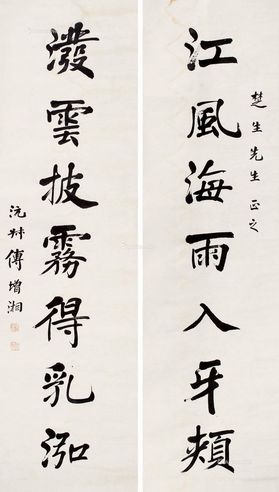 江風海雨入牙頰
楚生先生正之
潑雲披霧得乳泓
沅叔傅增湘